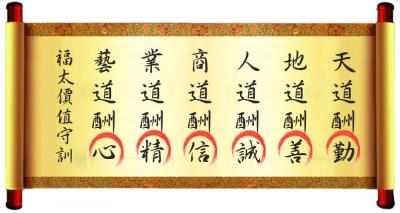 天道酬勤
地道酬善
人道酬誠
商道酬信
業道酬精
藝道酬心
福太價值守訓